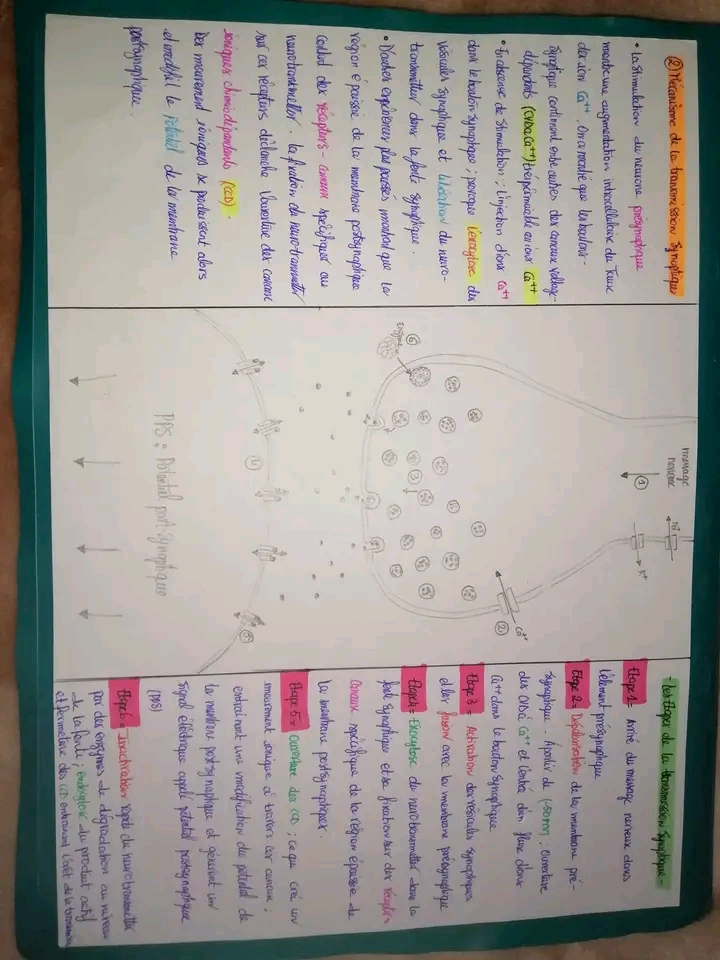 ② Mécanisme de la transmission synaptique
• La stimulation du neurone présynaptique
montre une augmentation intracellulaire du
des ion Ca++. On a montré que les boutons-
synaptique contiennent entre autres des canaux voltage-
dépendants (CVD à Ca++) très perméable aux ions Ca++
• En absence de stimulation, l'injection d'ions Ca++
dans le bouton synaptique ; provoque l'exocytose des
vésicules synaptique et libération du neuro-
transmetteur dans la fente synaptique.
• D'autres expériences plus poussées montrent que la
région épaissie de la membrane postsynaptique
contient des récepteurs-canaux spécifiques au
neurotransmetteur. la fixation du neurotransmetteur
sur ces récepteurs déclenche l'ouverture des canaux
ioniques chimiodépendants (CCD).
Des mouvement ioniques se produissent alors
et modifié le potentiel de la membrane
postsynaptique.
message
nerveux
①
Na+
K+
Ca++
②
③
④
⑤
⑥
enzyme
PPS : Potentiel post-synaptique
- Les Etapes de la transmission synaptique -
Etape 1: Arrivé du message nerveux dans
l'élément présynaptique
Etape 2: Dépolarisation de la membrane pré-
synaptique. A partir de (-50mv), Ouverture
des CVD à Ca++ et L'entré d'un flux d'ions
Ca++ dans le bouton synaptique
Etape 3 = Activation des vésicules synaptiques
et leur fusion avec la membrane présynaptique
Etape 4 = Exocytose du neurotransmetteur dans la
fente synaptique et sa fixation sur des récepteurs-
Canaux spécifique de la région épaissie de
La membrane postsynaptique.
Etape 5 = Ouverture des CD ; ce qui crée un
mouvement ionique à travers ces canaux ;
entraînant une modification du potentiel de
la membrane postsynaptique et générant un
signal éléctrique appelé potentiel postsynaptique
(PPS)
Etape 6 = Inactivation rapide du neurotransmetteur
par des enzymes de dégradation au niveau
de la fente, endocytose du produit
et fermeture des CD entrainant l'arrêt de la